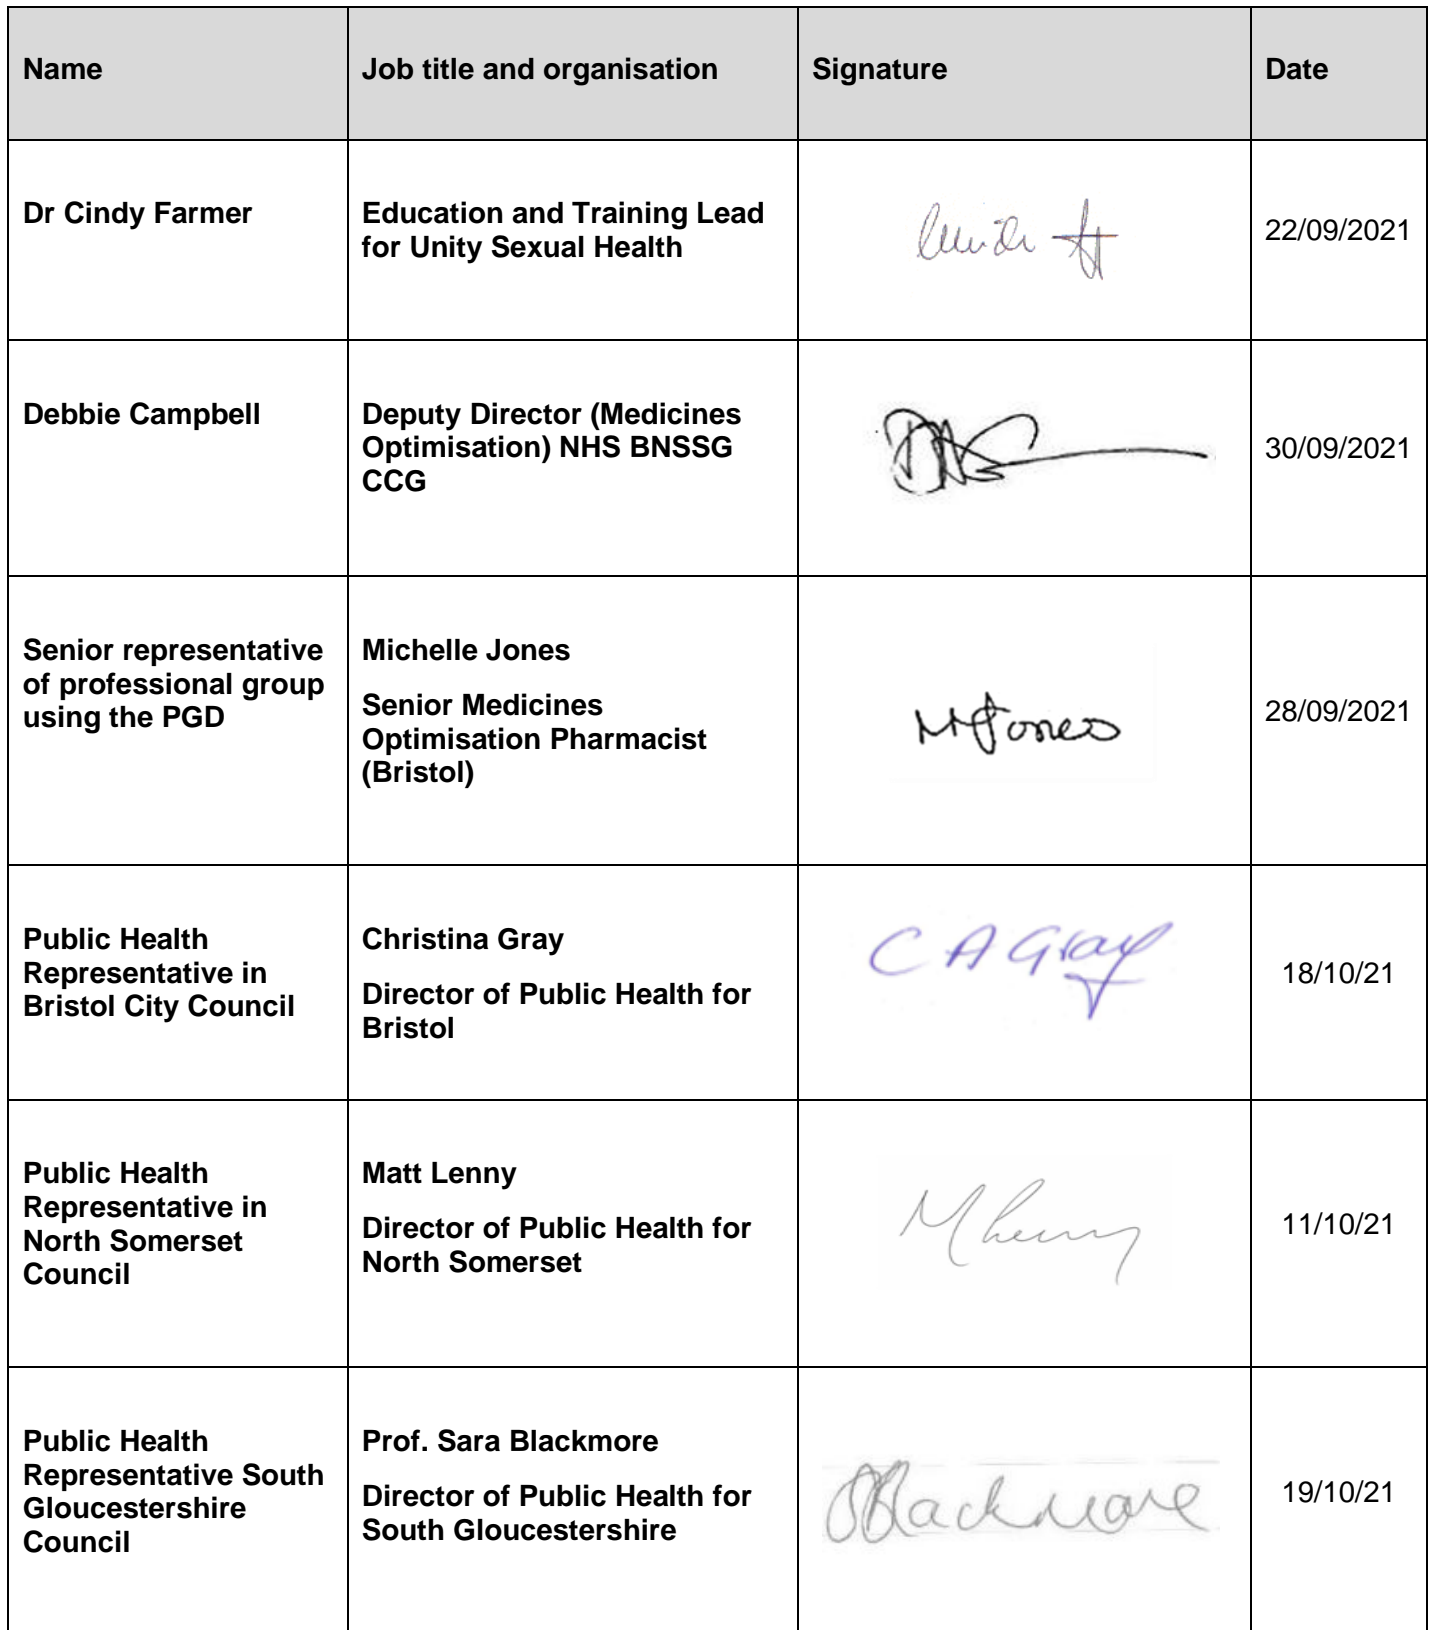 Name
Job title and organisation
Signature
Date
Dr Cindy Farmer
Education and Training Lead
for Unity Sexual Health
22/09/2021
Debbie Campbell
Deputy Director (Medicines
Optimisation) NHS BNSSG
CCG
30/09/2021
Senior representative
of professional group
using the PGD
Michelle Jones
Senior Medicines
Optimisation Pharmacist
(Bristol)
MJones
28/09/2021
Public Health
Representative in
Bristol City Council
Christina Gray
Director of Public Health for
Bristol
C A Gray
18/10/21
Public Health
Representative in
North Somerset
Council
Matt Lenny
Director of Public Health for
North Somerset
MLenny
11/10/21
Public Health
Representative South
Gloucestershire
Council
Prof. Sara Blackmore
Director of Public Health for
South Gloucestershire
SBlackmore
19/10/21